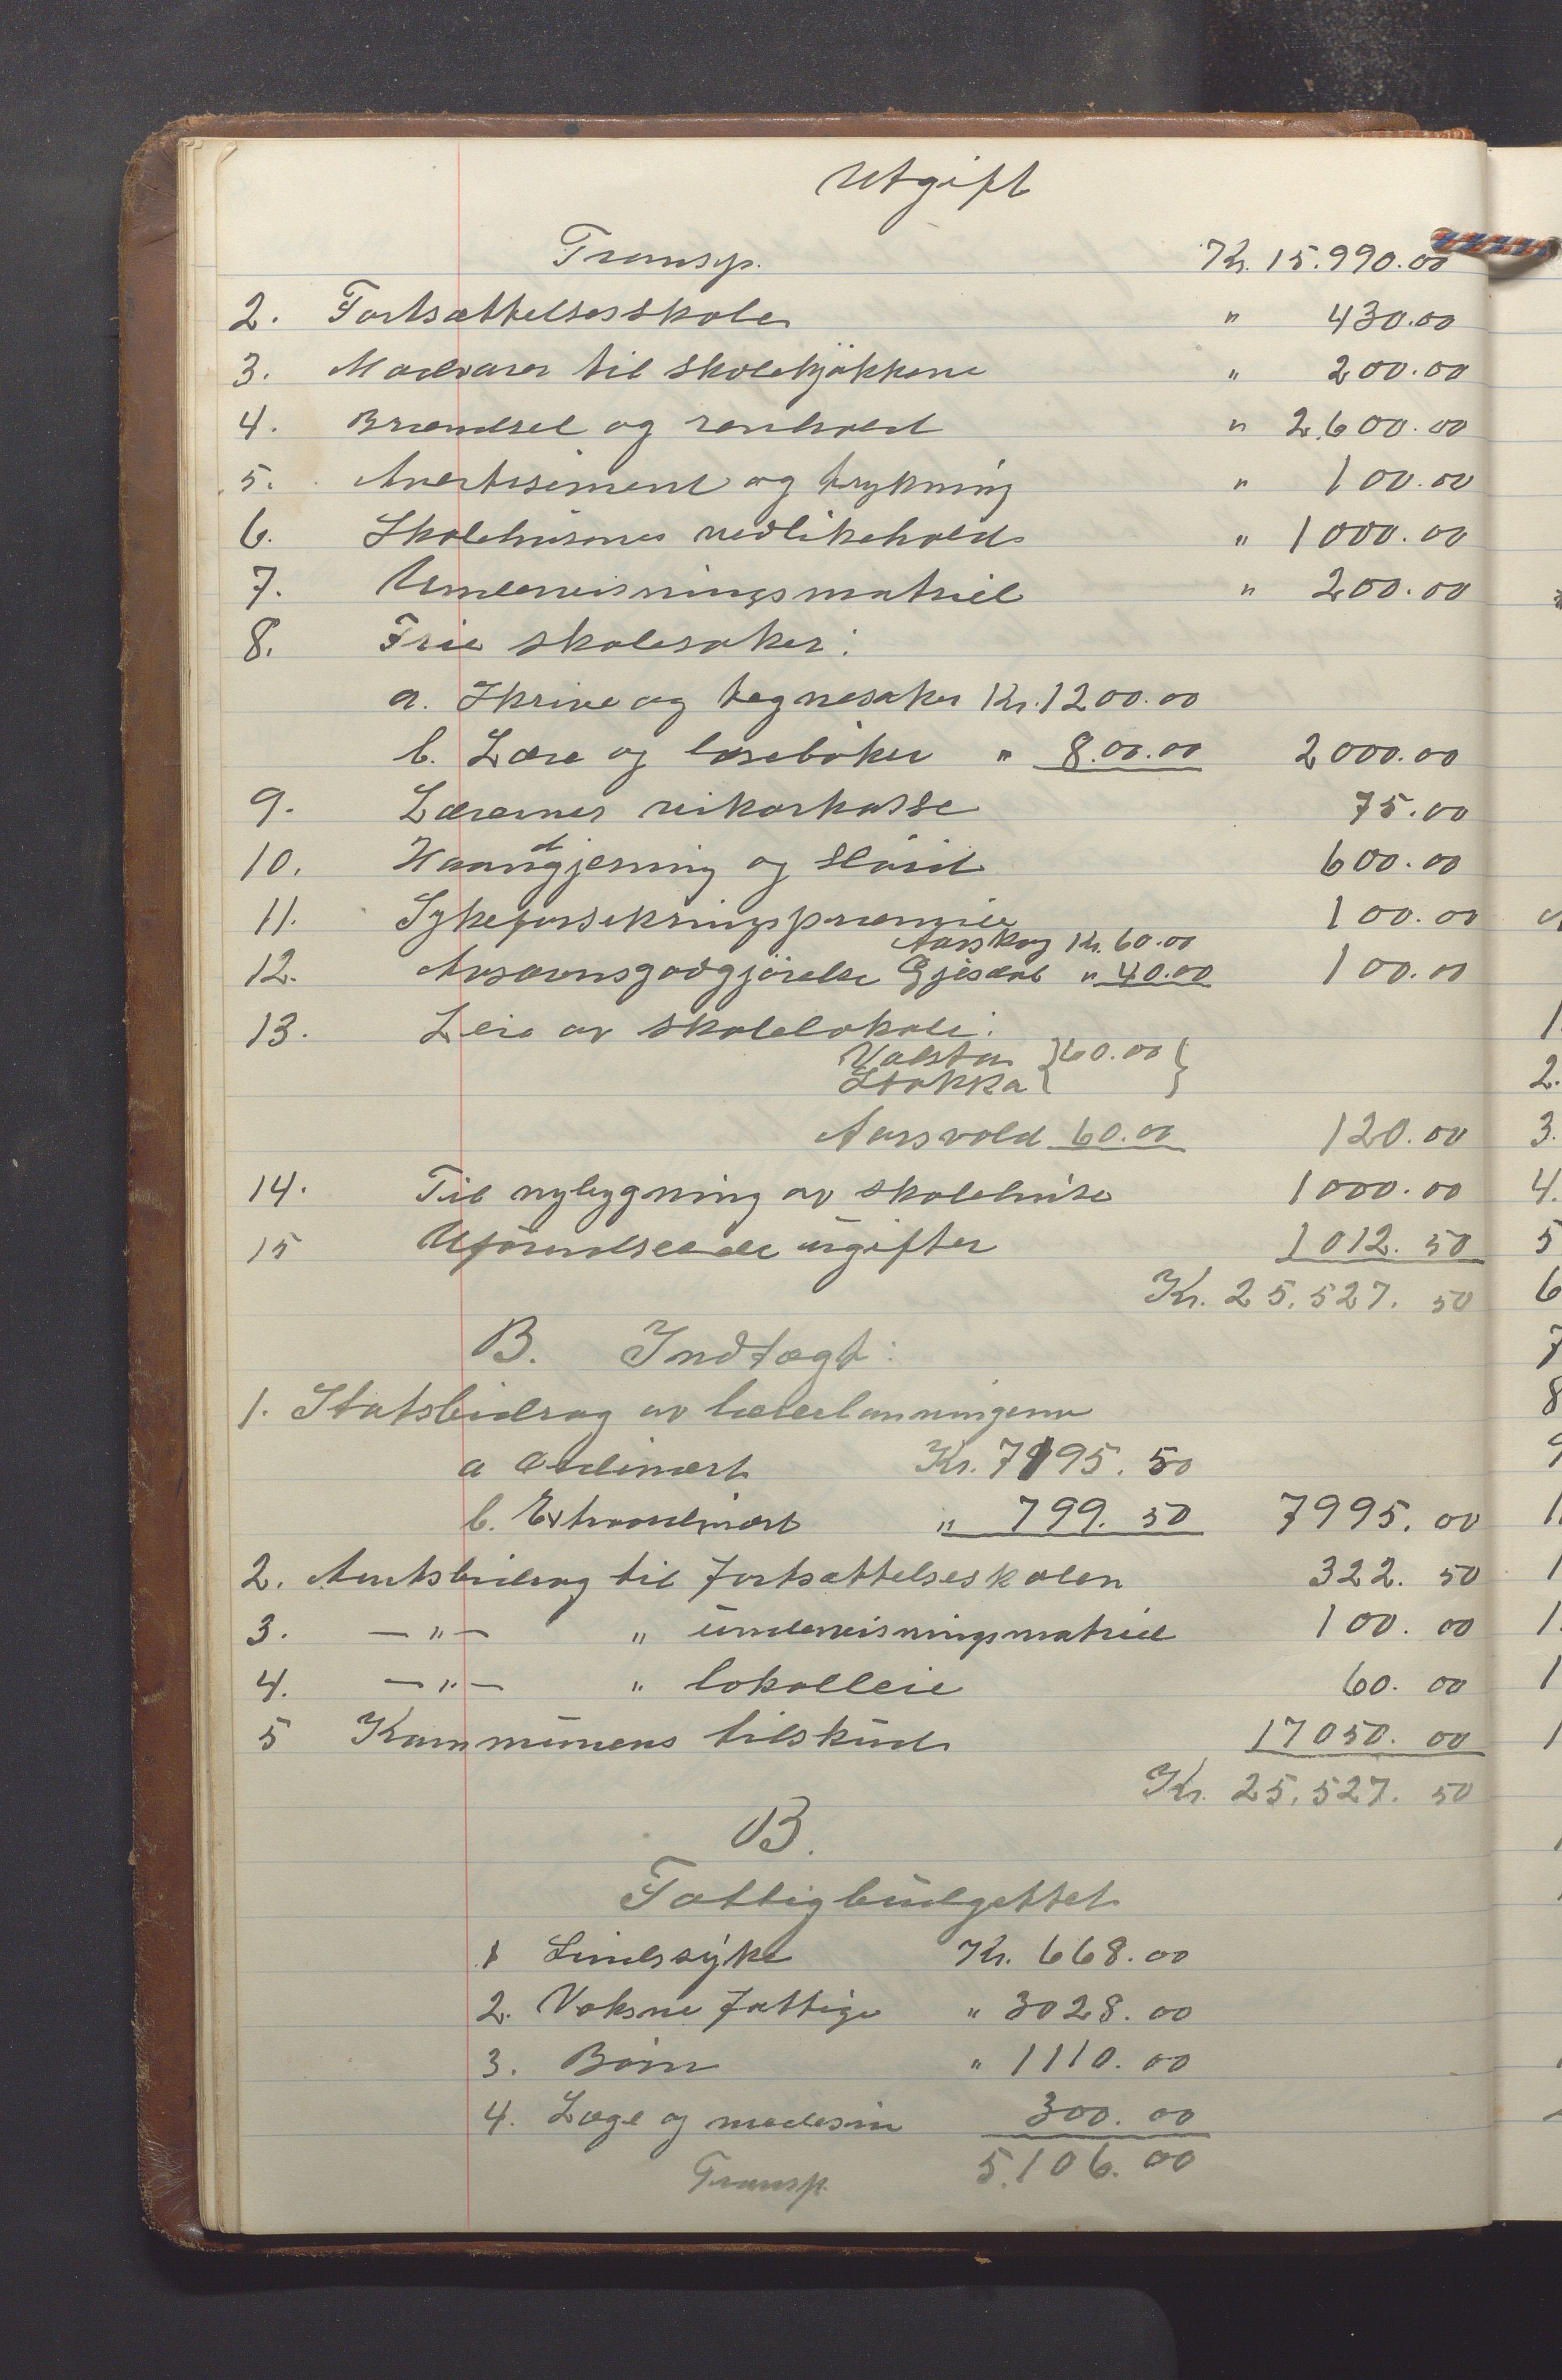 Utgift
Transp. Kr. 15.990.00
2. Fortsættelsesskole " 430.00
3. Madvarer til skolekjøkkene " 200.00
4. Brændsel og renhold " 2,600.00
5. Avertisement og trykning " 100.00
6. Skolehusenes vedlikehold " 1000.00
7. Undervisningsmatriel " 200.00
8. Frie skolesaker:
a. Skrive og tegnesaker Kr. 1200.00
b. Lære og læsebøker " 8.00.00 2000.00
9. Lærernes vikarkasse 75.00
10. Haandgjerning og Sløid 600.00
11. Sykeforsikringspræmie 100.00
Aarskog Kr. 60.00
12. Avsavnsgodgjørelse Gjesdal " 40.00 100.00
13. Leie av skolelokale:
Valstø } 60.00 }
Stokka
Aarsvold 60.00 120.00
14. Til nybygning av skolehuse 1000.00
15 Uforudseede ugifter 1012.50
Kr. 25.527.50
B. Indtægt:
1. Statsbidrag av lærerlønningene
a Ordinært Kr. 7195.50
b. Extraordinært " 799.50 7995.00
2. Amtsbidrag til fortsættelseskolen 322.50
3. —"— " undervisningsmatriel 100.00
4. —"— " lokalleie 60.00
5 Kommunens tilskud 17050.00
Kr. 25.527.50
B.
Fattigbudgettet
1 Sindssyke Kr. 668.00
2. Voksne fattige " 3028.00
3. Børn " 1110.00
4. Læge og medesin 300.00
Transp. 5.106.00